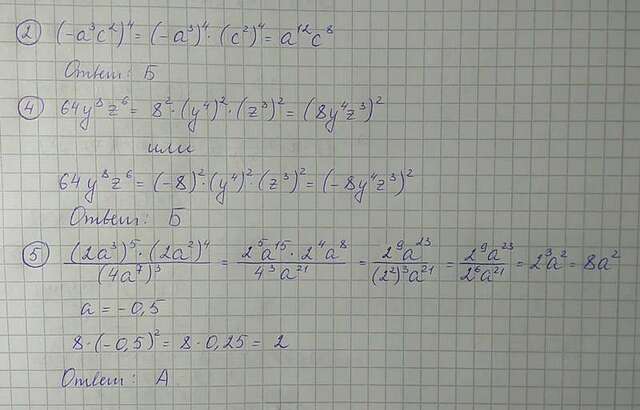 ② (-a³c²)⁴ = (-a³)⁴ · (c²)⁴ = a¹²c⁸
Ответ: Б
④ 64y⁸z⁶ = 8² · (y⁴)² · (z³)² = (8y⁴z³)²
или
64y⁸z⁶ = (-8)² · (y⁴)² · (z³)² = (-8y⁴z³)²
Ответ: Б
⑤ (2a³)⁵ · (2a²)⁴ / (4a⁷)³ = 2⁵a¹⁵ · 2⁴a⁸ / 4³a²¹ = 2⁹a²³ / (2²)³a²¹ = 2⁹a²³ / 2⁶a²¹ = 2³a² = 8a²
a = -0,5
8 · (-0,5)² = 8 · 0,25 = 2
Ответ: А